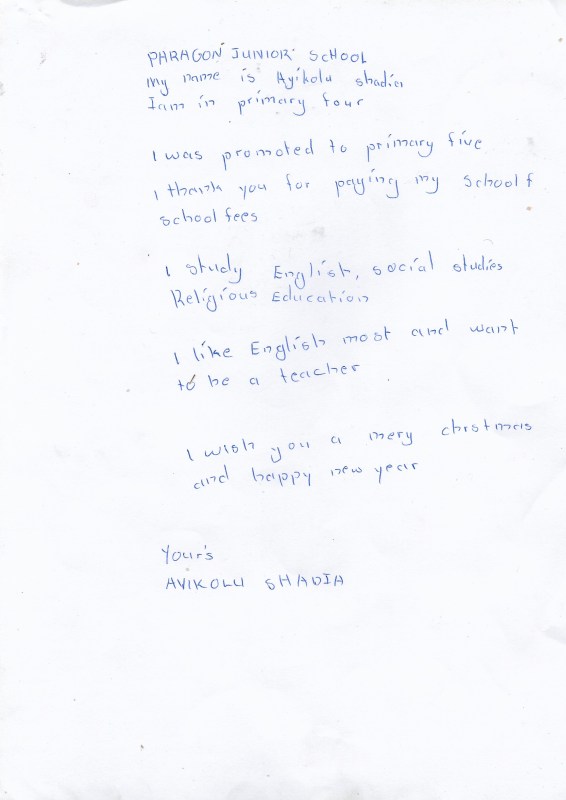 PARAGON JUNIOR SCHOOL
my name is Ayikolu shadia
I am in primary four
I was promoted to primary five
I thank you for paying my school f
school fees
I study English, social studies
Religious Education
I like English most and want
to be a teacher
I wish you a mery chrstmas
and happy new year
Your's
AYIKOLU SHADIA